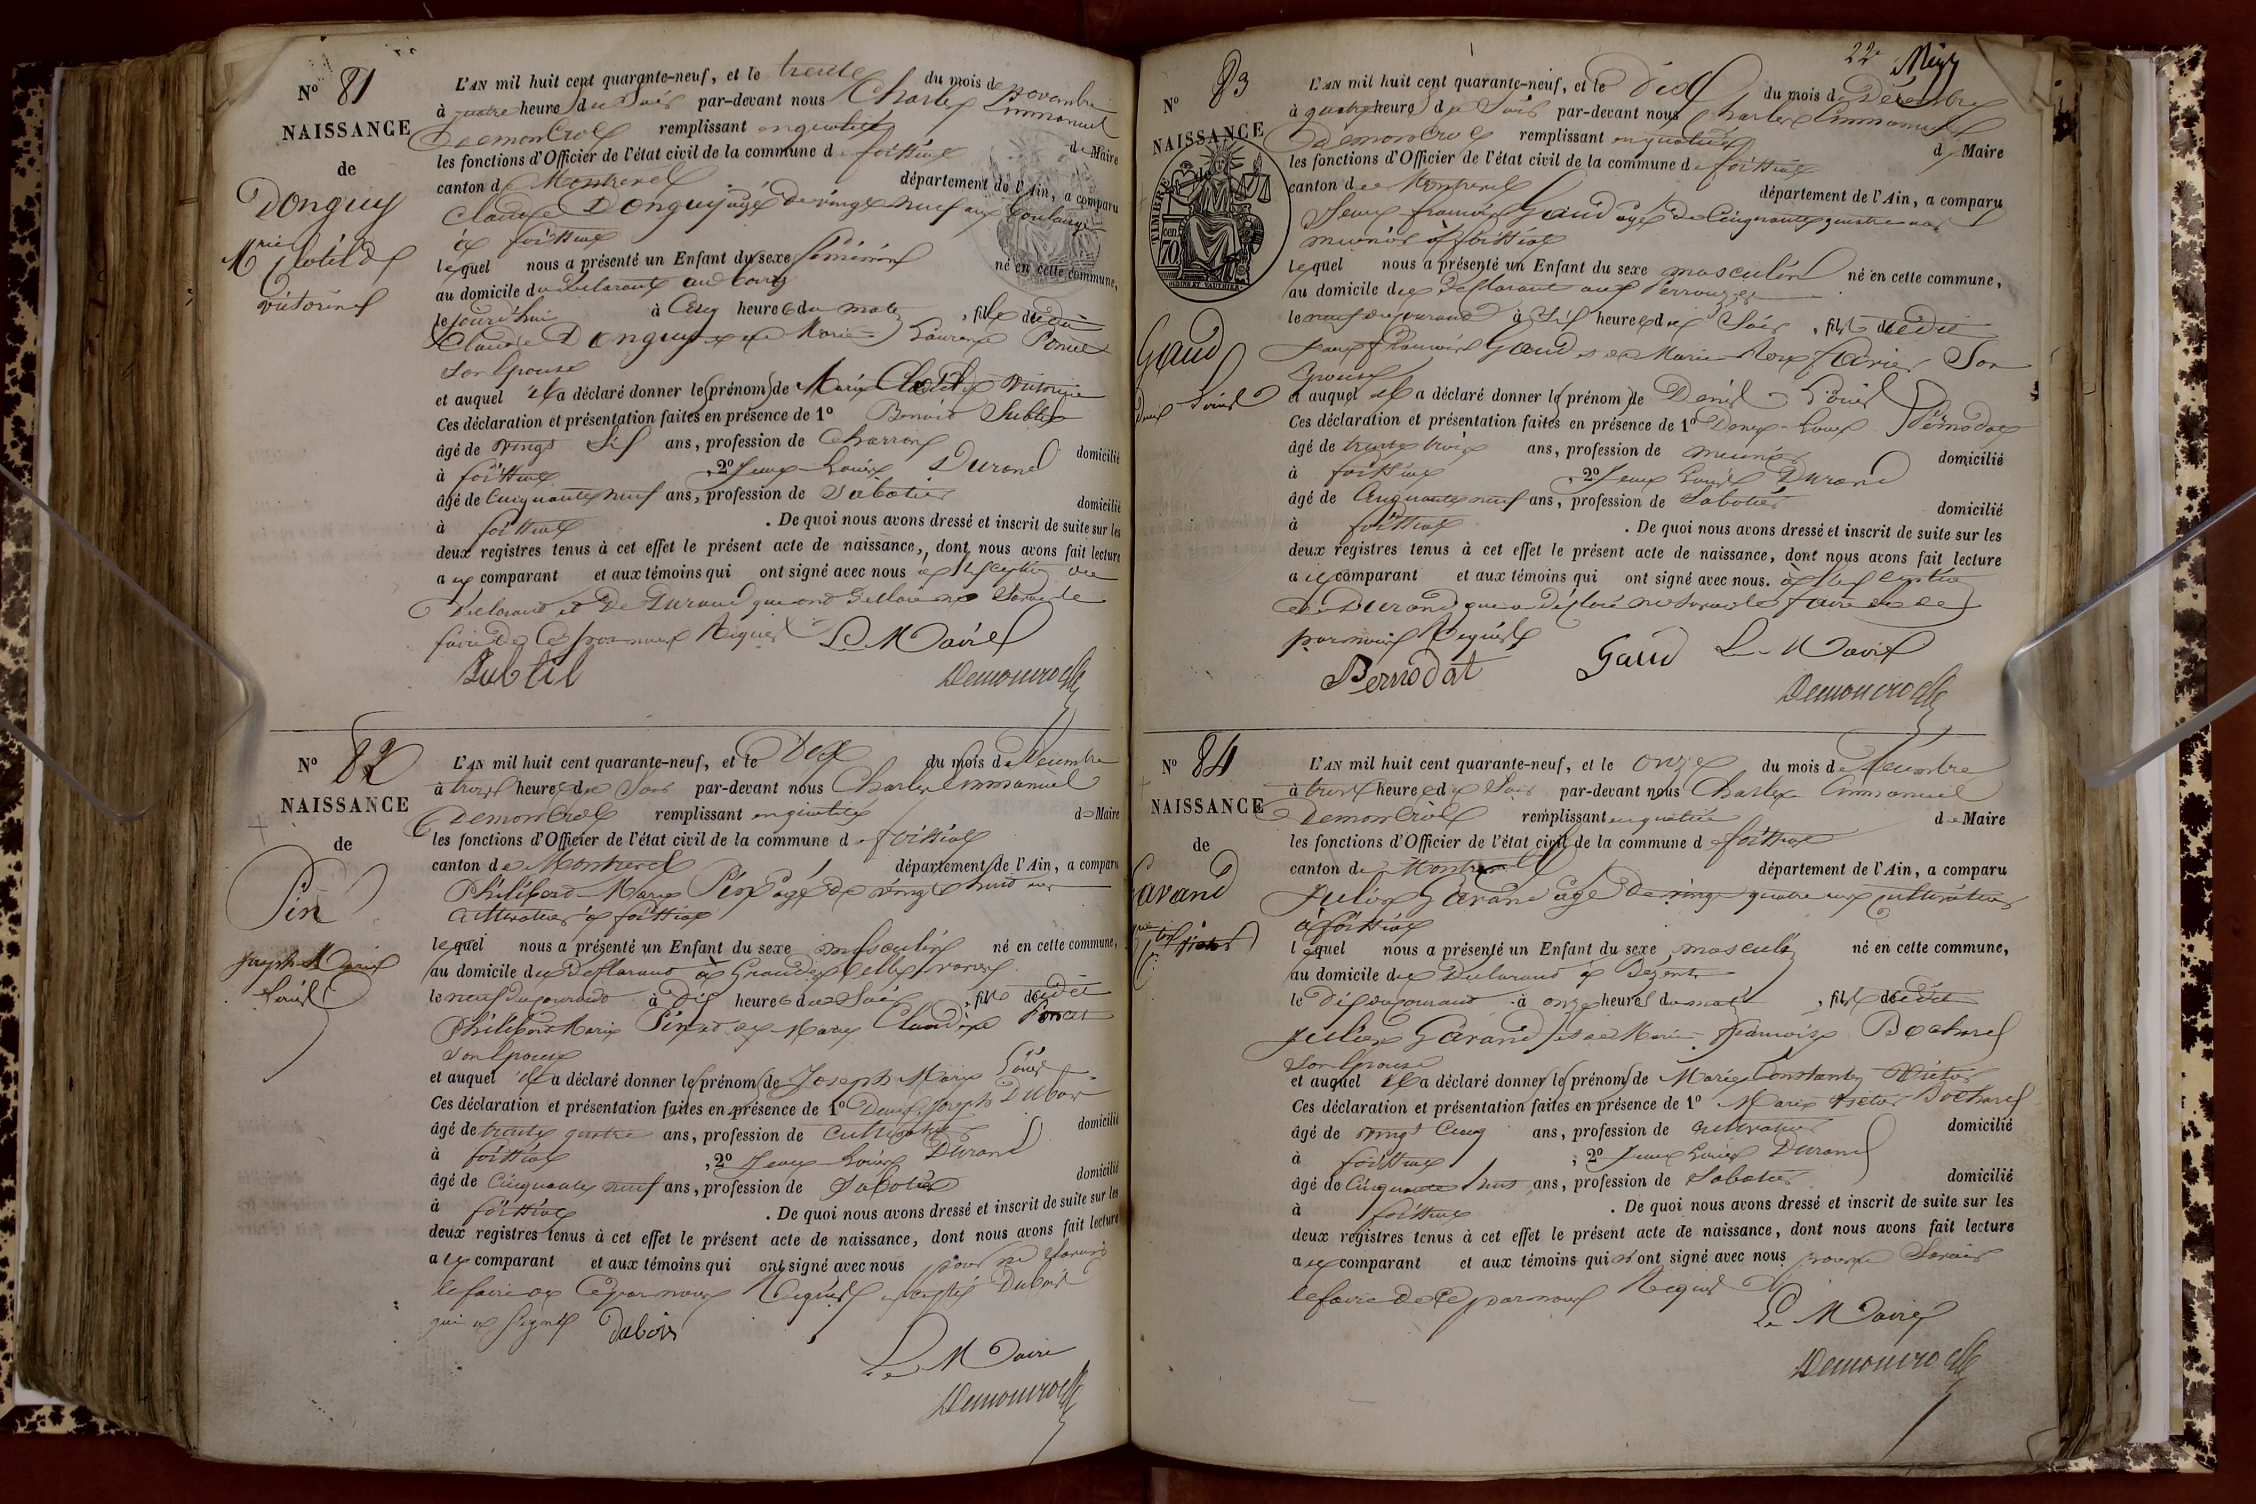 N° 81
NAISSANCE
de
Donguy
Mrie Clotilde
victorine
L'AN mil huit cent quarante-neuf, et le trente du mois de novembre
à quatre heures du soir par-devant nous Charles Emmanuel
Demoncroz remplissant en qualité de Maire
les fonctions d'Officier de l'état civil de la commune de foissiat
canton de Montrevel département de l'Ain, a comparu
Claude Donguy âgé de vingt neuf ans
à foissiat
lequel nous a présenté un Enfant du sexe féminin né en cette commune,
au domicile du déclarant au bourg
le jourd'hui à Cinq heures du matin, fille dudit
Claude Donguy et de Marie Laurence Poncet
son épouse
et auquel il a déclaré donner les prénoms de Marie Clotilde victorine
Ces déclaration et présentation faites en présence de 1° Benoit Subtil
âgé de vingt six ans, profession de charron domicilié
à foissiat, 2° Jean-Louis Durand
âgé de Cinquante neuf ans, profession de sabotier domicilié
à foissiat. De quoi nous avons dressé et inscrit de suite sur les
deux registres tenus à cet effet le présent acte de naissance, dont nous avons fait lecture
au comparant et aux témoins qui ont signé avec nous à l'exception du
déclarant et de Durand qui ont déclaré ne savoir le
faire de ce par nous Requis Le Maire
Subtil Demoncroz
N° 82
NAISSANCE
de
Pin
Joseph Marie
Louis
L'AN mil huit cent quarante-neuf, et le dix du mois de Décembre
à trois heures du soir par-devant nous Charles Emmanuel
Demoncroz remplissant en qualité de Maire
les fonctions d'Officier de l'état civil de la commune de foissiat
canton de Montrevel département de l'Ain, a comparu
Philibert-Marie Pin âgé de vingt huit ans
Cultivateur à foissiat
lequel nous a présenté un Enfant du sexe masculin né en cette commune,
au domicile du Déclarant à
le neuf du courant à Dix heures du Soir, fils dudit
Philibert Marie Pin et de Marie Claudine Poncet
son épouse
et auquel il a déclaré donner les prénoms de Joseph Marie Louis
Ces déclaration et présentation faites en présence de 1° Denis Joseph Dubois
âgé de trente quatre ans, profession de cultivateur domicilié
à foissiat, 2° Jean-Louis Durand
âgé de Cinquante neuf ans, profession de Sabotier domicilié
à foissiat. De quoi nous avons dressé et inscrit de suite sur les
deux registres tenus à cet effet le présent acte de naissance, dont nous avons fait lecture
au comparant et aux témoins qui ont signé avec nous pour ne savoir
le faire de ce par nous Requis excepté Dubois
qui a signé Dubois
Le Maire
Demoncroz
22e
N° 83
NAISSANCE
de
TIMBRE
cen. 70
Gaud
Denis Louis
L'AN mil huit cent quarante-neuf, et le Dix du mois de Décembre
à quatre heures du Soir par-devant nous Charles Emmanuel
Demoncroz remplissant en qualité de Maire
les fonctions d'Officier de l'état civil de la commune de foissiat
canton de Montrevel département de l'Ain, a comparu
Jean-françois Gaud âgé de Cinquante quatre ans
meunier à foissiat
lequel nous a présenté un Enfant du sexe masculin né en cette commune,
au domicile du Déclarant aux
le neuf du courant à Six heures du Soir, fils dudit
Jean François Gaud et de Marie Rose favier Son
Epouse
et auquel il a déclaré donner les prénoms de Denis Louis
Ces déclaration et présentation faites en présence de 1° Denis-Louis Pernodat
âgé de trente trois ans, profession de meunier domicilié
à foissiat, 2° Jean Louis Durand
âgé de Cinquante neuf ans, profession de Sabotier domicilié
à foissiat. De quoi nous avons dressé et inscrit de suite sur les
deux registres tenus à cet effet le présent acte de naissance, dont nous avons fait lecture
au comparant et aux témoins qui ont signé avec nous. à l'exception
de Durand qui a Déclaré ne savoir le faire de ce
par nous Requis
Pernodat Gaud Le Maire
Demoncroz
N° 84
NAISSANCE
de
Garand
L'AN mil huit cent quarante-neuf, et le onze du mois de Décembre
à trois heures du Soir par-devant nous Charles Emmanuel
Demoncroz remplissant en qualité de Maire
les fonctions d'Officier de l'état civil de la commune de foissiat
canton de Montrevel département de l'Ain, a comparu
Julien Garand âgé de vingt quatre ans cultivateur
à foissiat
lequel nous a présenté un Enfant du sexe masculin né en cette commune,
au domicile du Déclarant à
le dix du courant à onze heures du matin, fils dudit
Julien Garand et de Marie françoise Bochard
son épouse
et auquel il a déclaré donner les prénoms de Marie Constantin Victor
Ces déclaration et présentation faites en présence de 1° Marie Victor Bochard
âgé de vingt Cinq ans, profession de cultivateur domicilié
à foissiat, 2° Jean Louis Durand
âgé de Cinquante neuf ans, profession de Sabotier domicilié
à foissiat. De quoi nous avons dressé et inscrit de suite sur les
deux registres tenus à cet effet le présent acte de naissance, dont nous avons fait lecture
au comparant et aux témoins qui n'ont signé avec nous pour ne Savoir
le faire de ce par nous Requis
Le Maire
Demoncroz